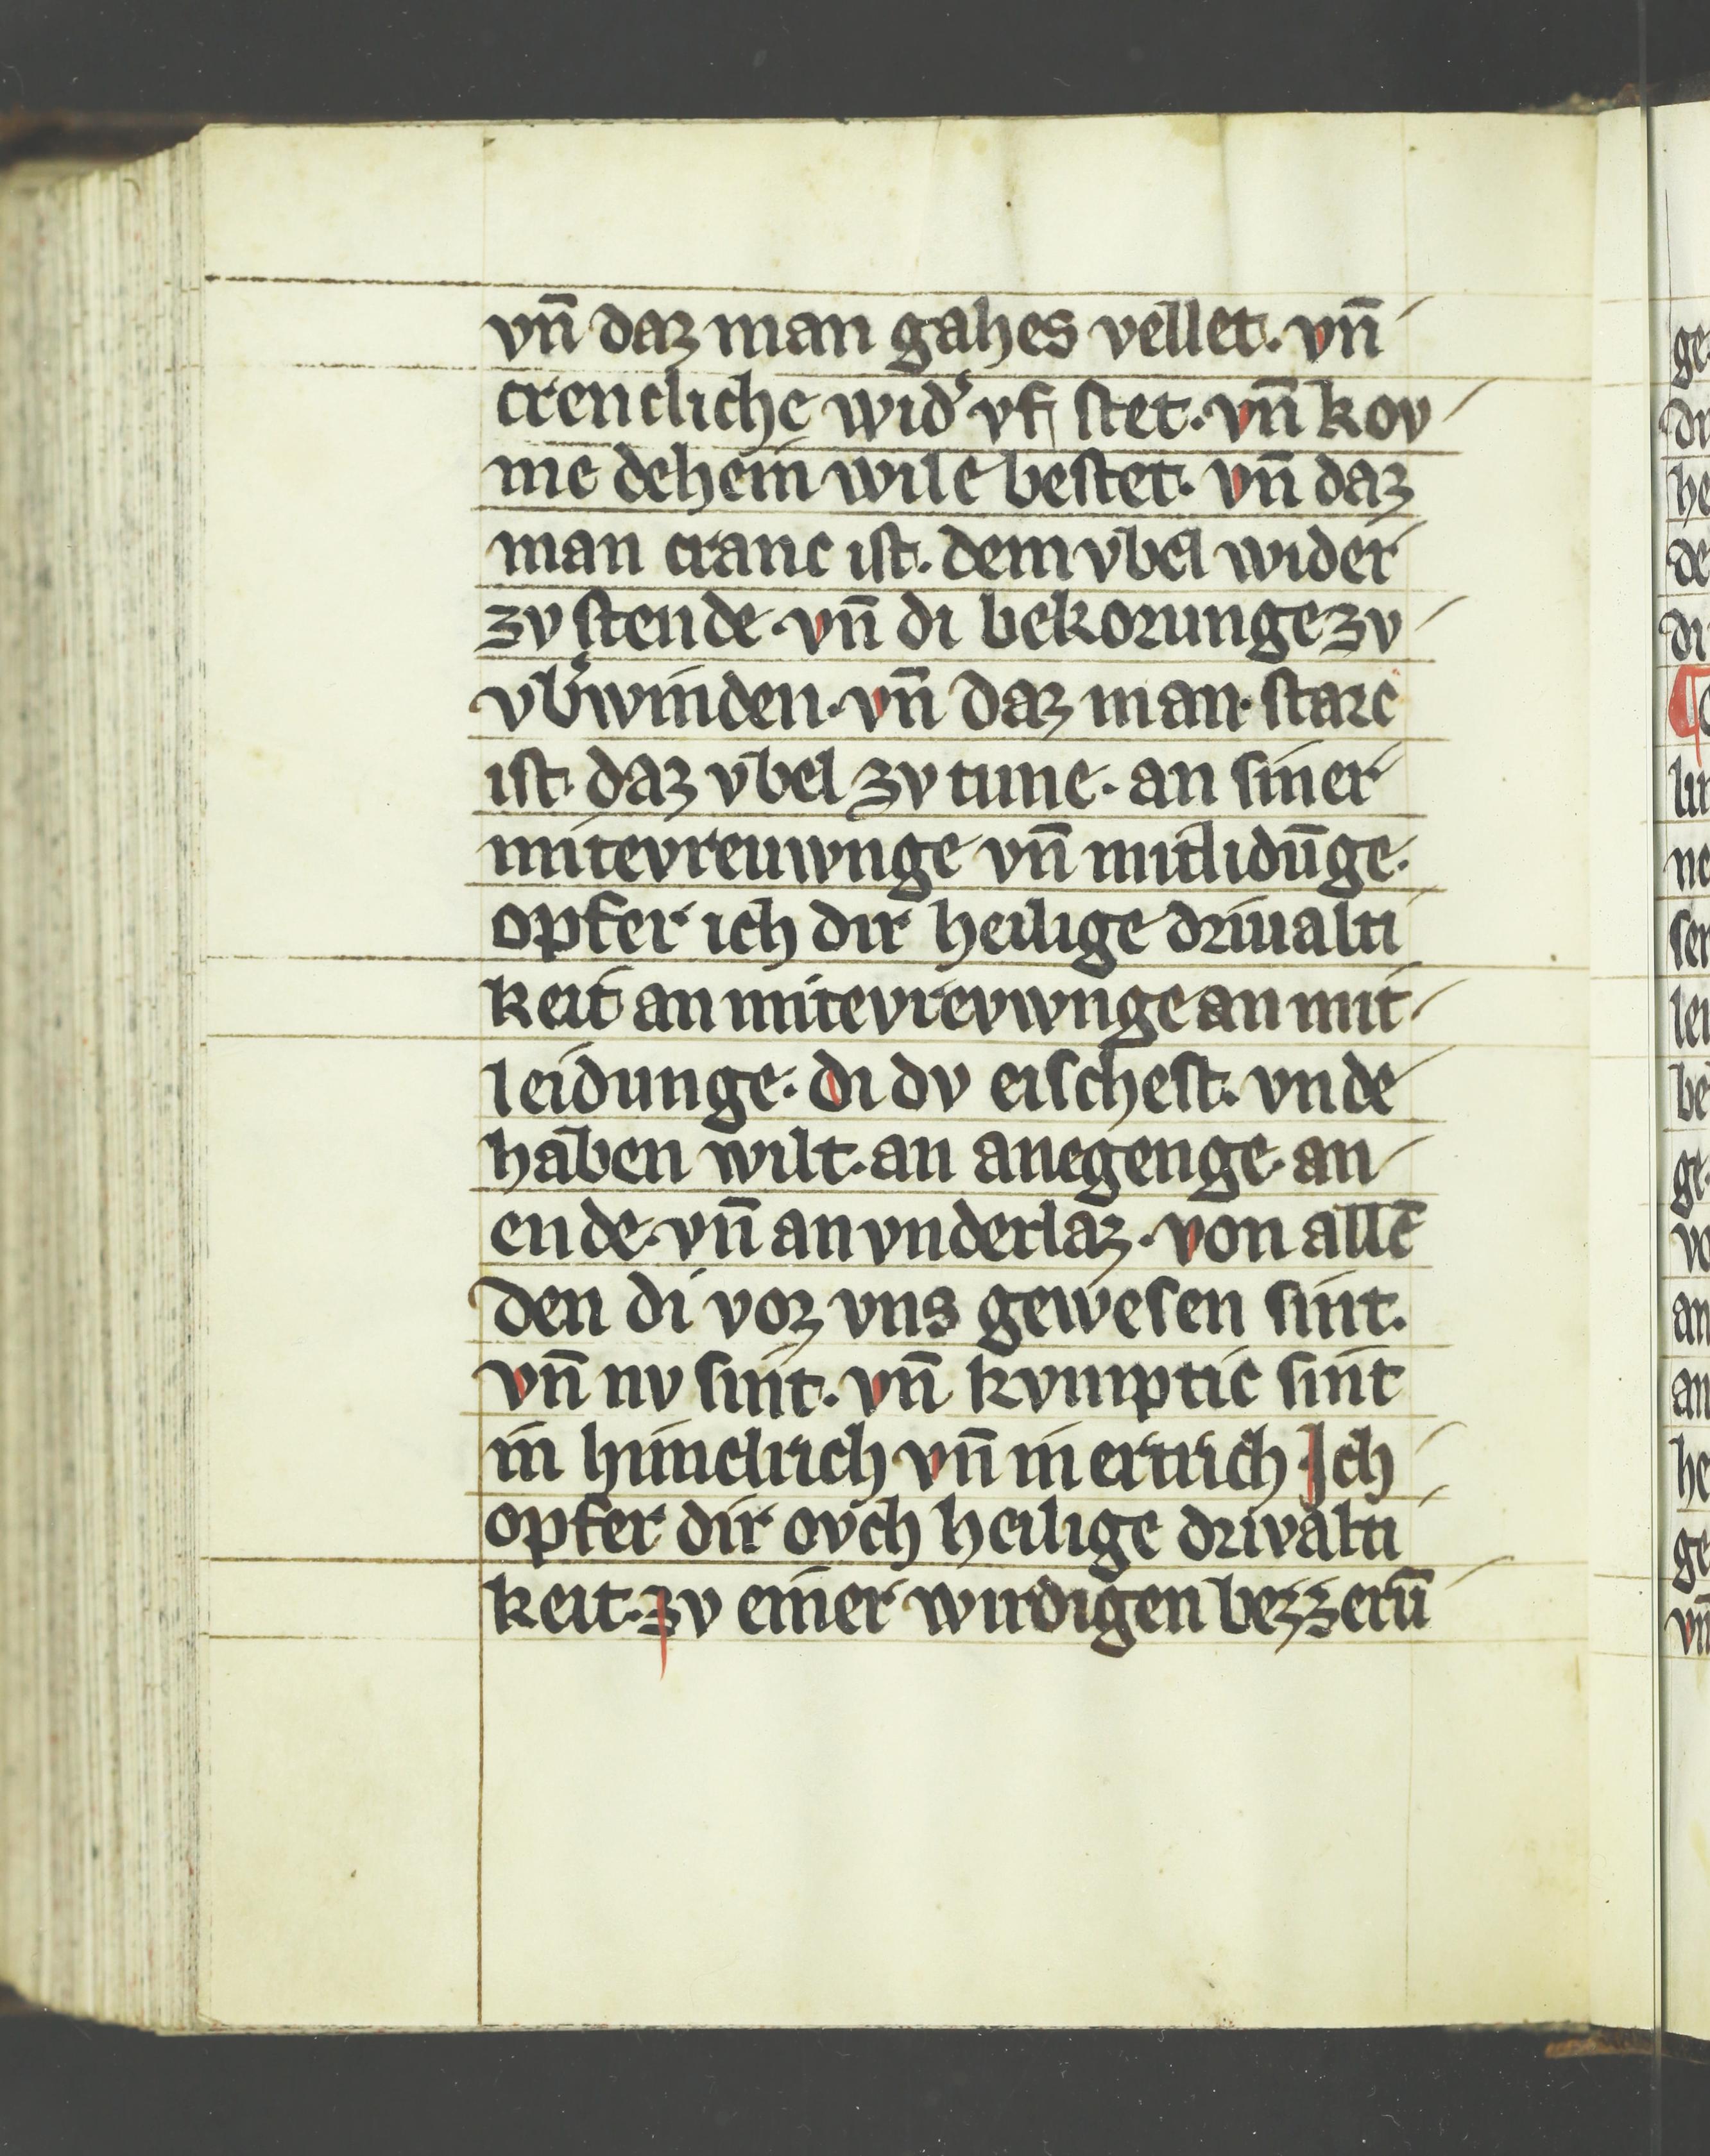 vn̄ daz man gahes vellet. vn̄
crencliche wid͛ vf stet. vn̄ kov
me dehein wile bestet. vn̄ daz
man cranc ist. dem vbel wider
zv stende. vn̄ di bekorunge zv
vb͛winden. vn̄ daz man starc
ist. daz vbel zv tune. an siner
mitevreuwnge vn̄ mitlidūge.
opfer ich dir heilige driualti
keit an mitevrevwnge an mit
leidunge. di dv eischest. vnde
haben wilt. an anegenge. an
ende. vn̄ an vnderlaz. von allē
den di vor vns gewesen sint.
vn̄ nv sint. vn̄ kvmptic sint
in himelrich vn̄ in ertrich Ich
opfer dir ovch heilige drivalti
keit. zv einer wirdigen bezzerū